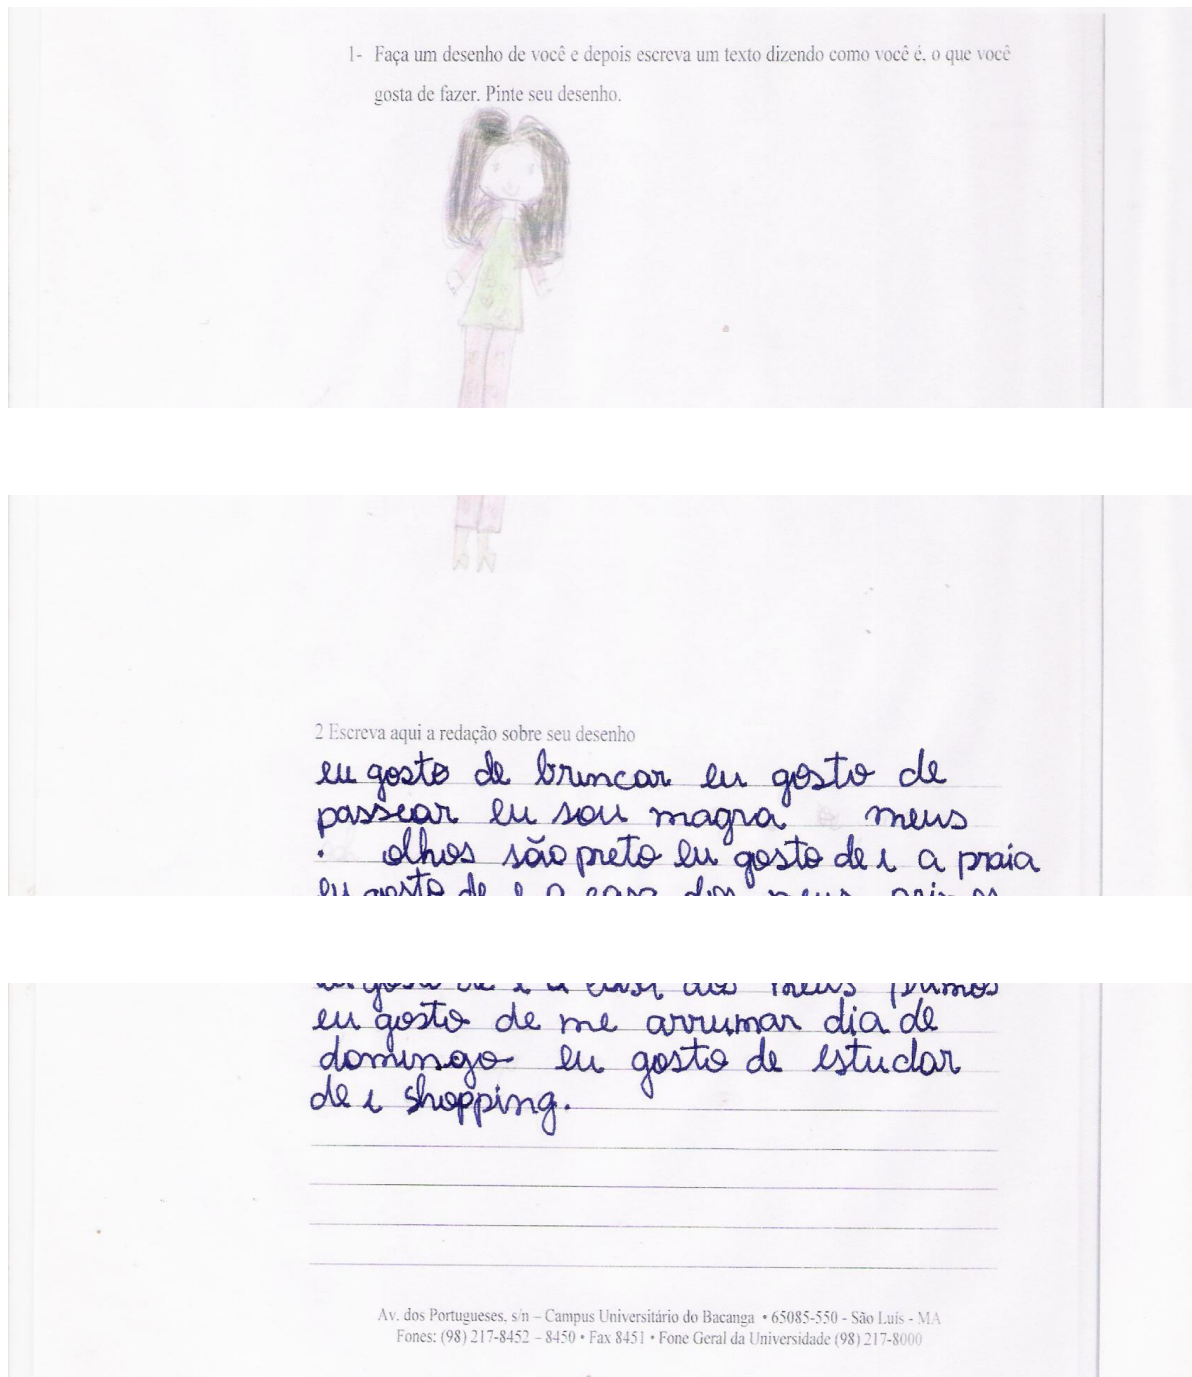 1- Faça um desenho de você e depois escreva um texto dizendo como você é, o que você
gosta de fazer. Pinte seu desenho.
2 Escreva aqui a redação sobre seu desenho
eu gosto de brincar eu gosto de
passear eu sou magra meus
olhos são preto eu gosto de i a praia
eu gosto de i a casa dos meus primos
eu gosto de me arrumar dia de
domingo eu gosto de estudar
de i shopping.
Av. dos Portugueses, s/n – Campus Universitário do Bacanga • 65085-550 - São Luís - MA
Fones: (98) 217-8452 – 8450 • Fax 8451 • Fone Geral da Universidade (98) 217-8000